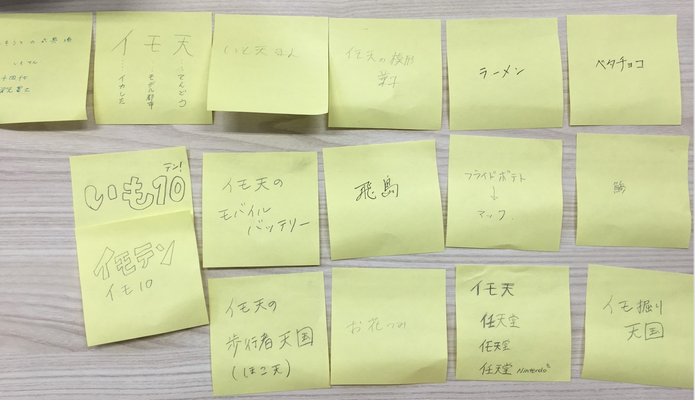 イモ天
イカした
モデル都市
てんどク
いも天まん
ラーメン
ペタチョコ
テン!
いも10
イモテン
イモ10
イモ天の
モバイル
バッテリー
飛鳥
フライドポテト
↓
マック
イモ天の
歩行者天国
(ほこ天)
お花つみ
イモ天
任天堂
任天堂
任天堂 Nintendo
イモ掘り
天国